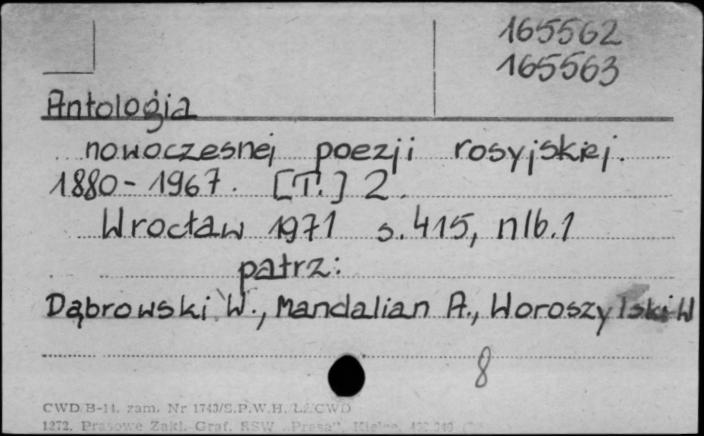 165562
165563
Antologia
nowoczesnej poezji rosyjskiej.
1880-1967. [T.] 2.
Wrocław 1971 s. 415, nlb. 1
patrz:
Dąbrowski W., Mandalian A., Woroszylski W
8
CWD B-14. zam. Nr 1743/S.P.W.H. ŁZCWD
1272. Prasowe Zakł. Graf. RSW „Prasa", Kielce,